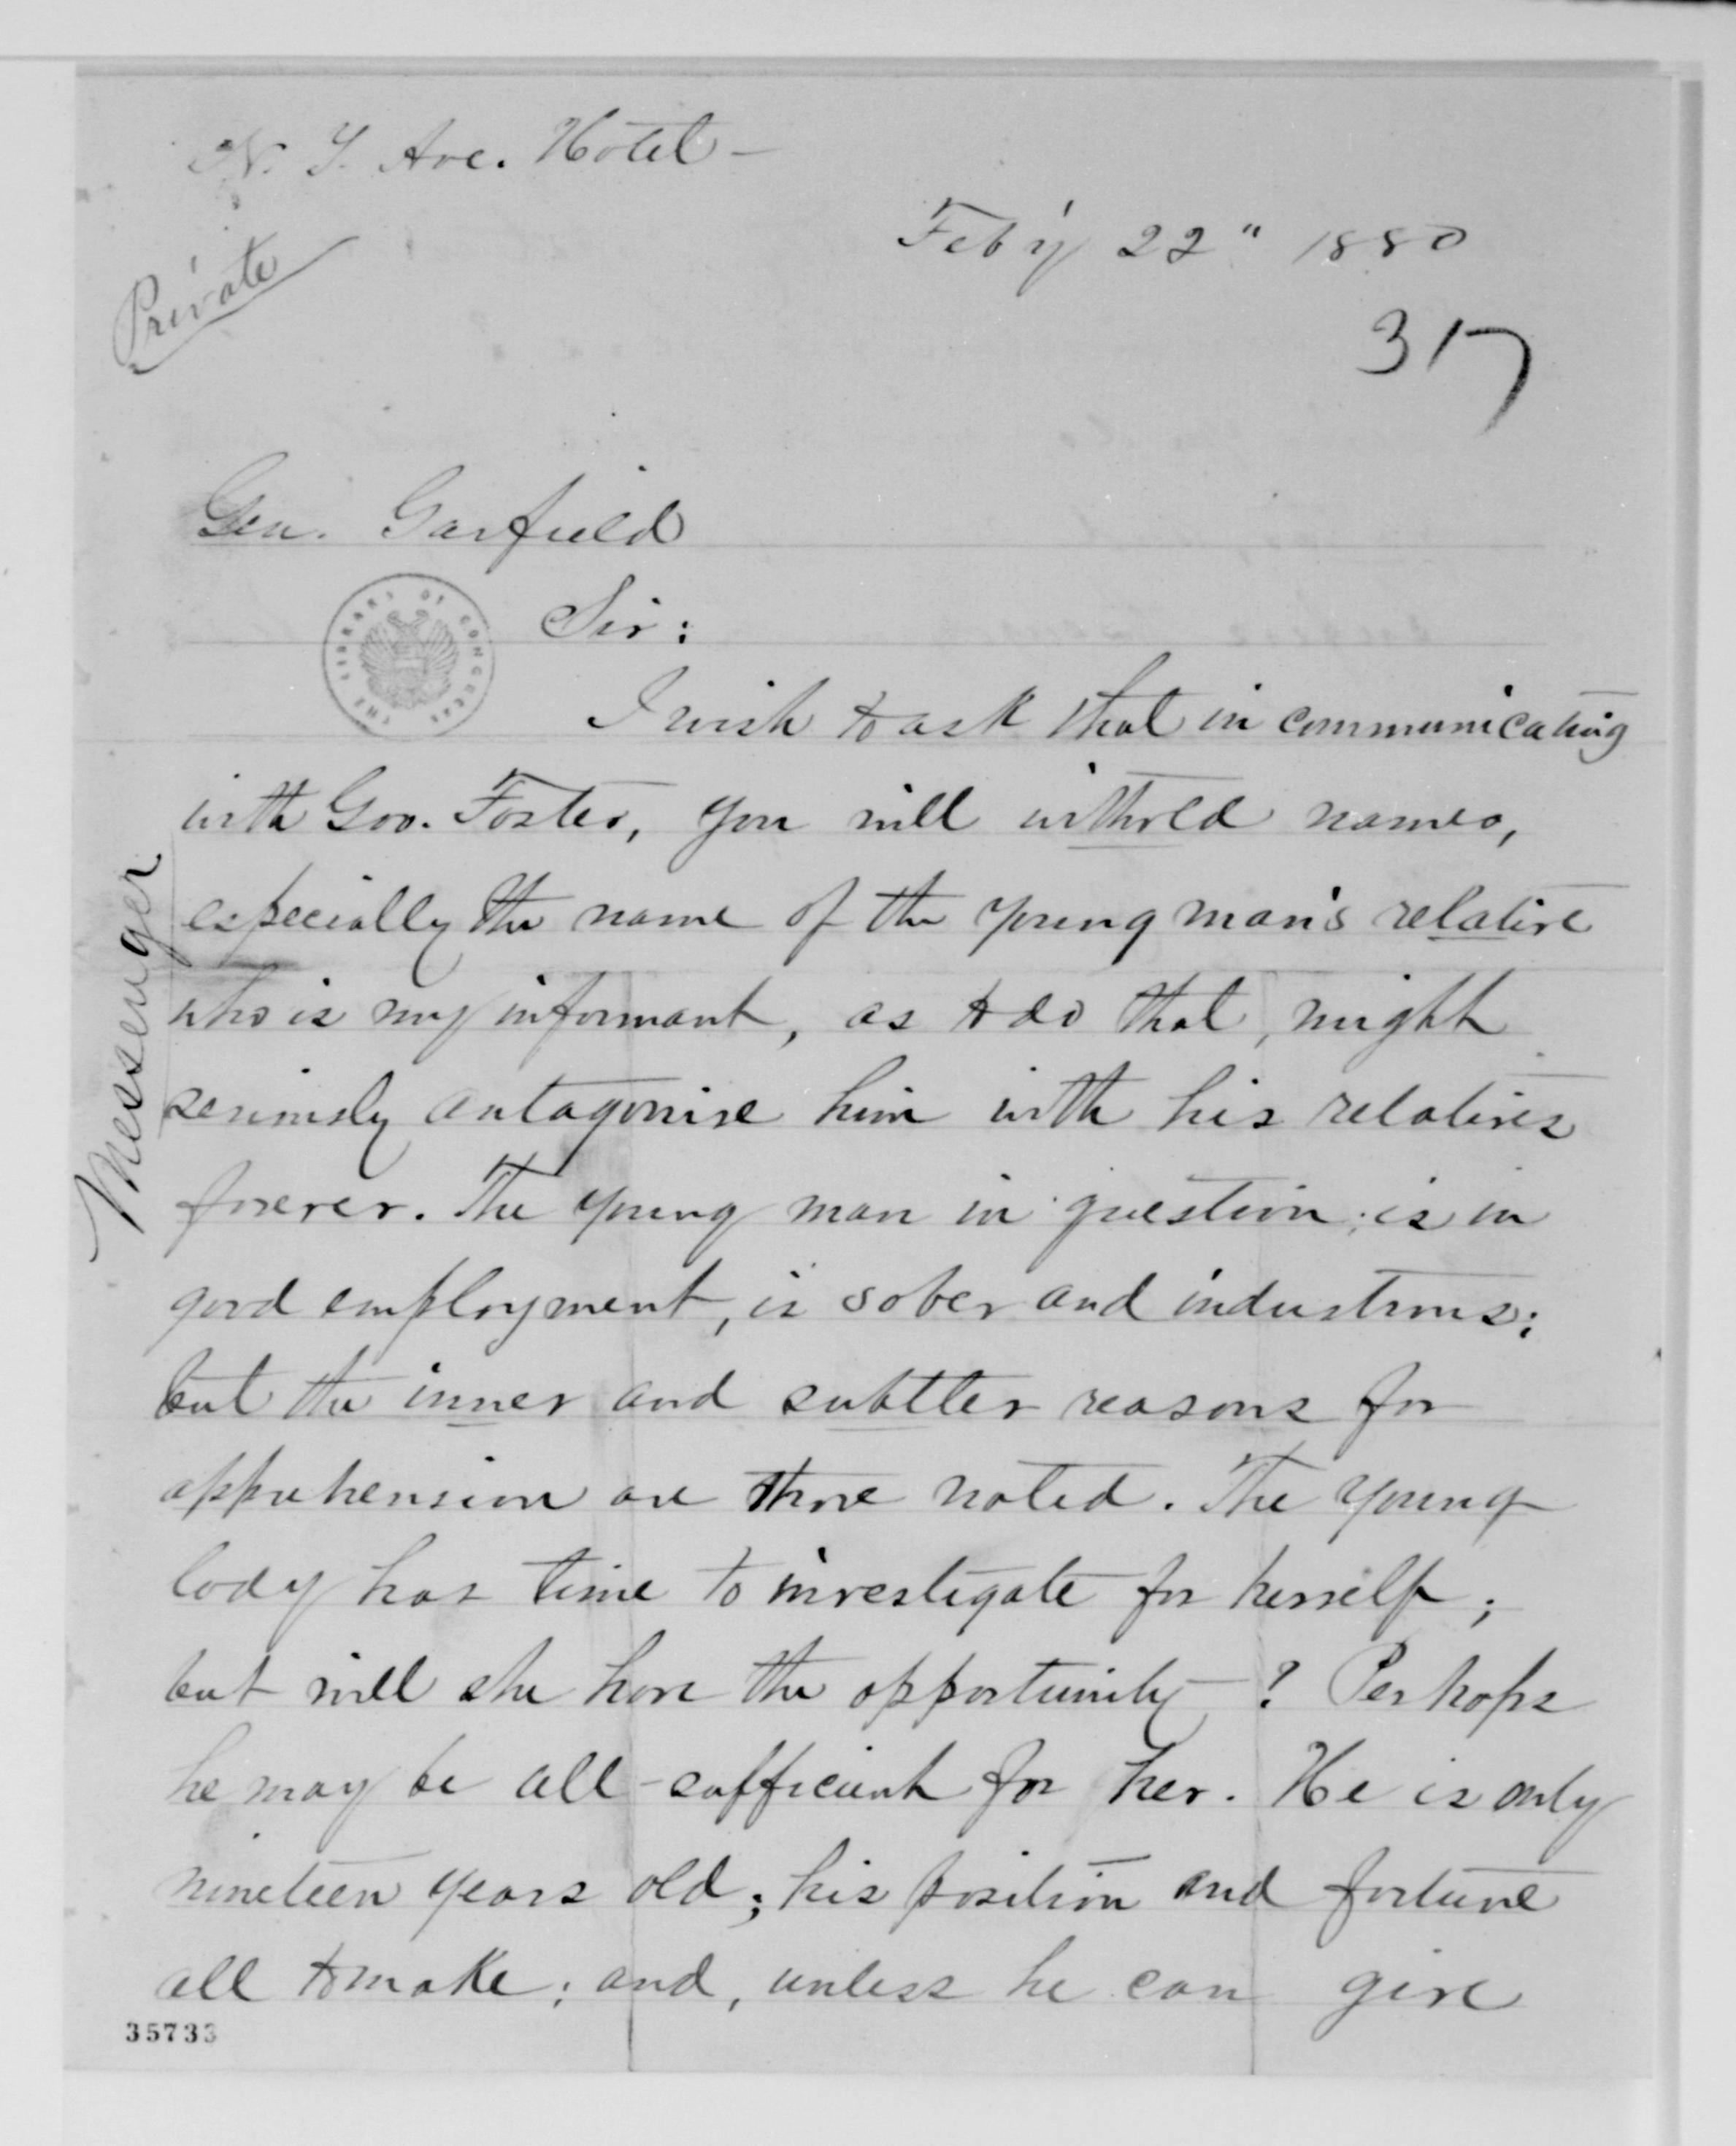 N. Y. Ave. Hotel –
Feb'y 22" 1880
Private
317
Gen. Garfield
THE LIBRARY OF CONGRESS
Sir:
I wish to ask that in communicating
with Gov. Foster, you will withold names,
especially the name of the young man's relative
who is my informant, as to do that, might
seriously antagonise him with his relatives
forever. The young man in question, is in
good employment, is sober and industrious;
but the inner and subttler reasons for
apprehension are those noted. The young
lady has time to investigate for herself;
but will she have the opportunity? Perhaps
he may be all-sufficient for her. He is only
nineteen years old; his position and fortune
all to make; and, unless he can give
Messenger
35733